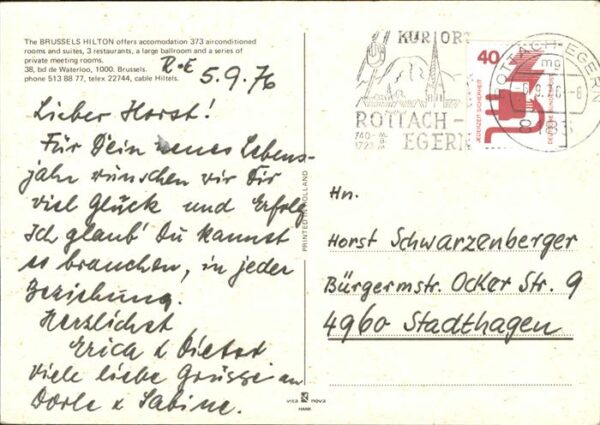 The BRUSSELS HILTON offers accomodation 373 airconditioned
rooms and suites, 3 restaurants, a large ballroom and a series of
private meeting rooms.
38, bd de Waterloo, 1000. Brussels.
phone 513 88 77, telex 22744, cable Hiltels.
R.-E 5.9.76
Lieber Horst!
Für Dein neues Lebens-
jahr wünschen wir Dir
viel Glück und Erfolg
ich glaub' Du kannst
es brauchen, in jeder
Beziehung.
Herzlichst
Erica & Dieter
Viele liebe Grüsse an
Dorle & Sabine.
PRINTED IN HOLLAND
vita nova
KURORT
ROTTACH-
EGERN
740-
1723
40
JEDERZEIT SICHERHEIT
DEUTSCHE BUNDESPOST
ROTTACH-EGERN
mg
-6.9.76-8
Hn.
Horst Schwarzenberger
Bürgermstr. Ocker Str. 9
4960 Stadthagen